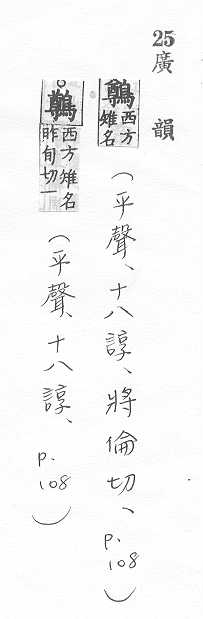 25廣韻
鷷西方雉名(平聲、十八諄、將倫切、p.108)
鷷西方雉名昨旬切一(平聲、十八諄、p.108)